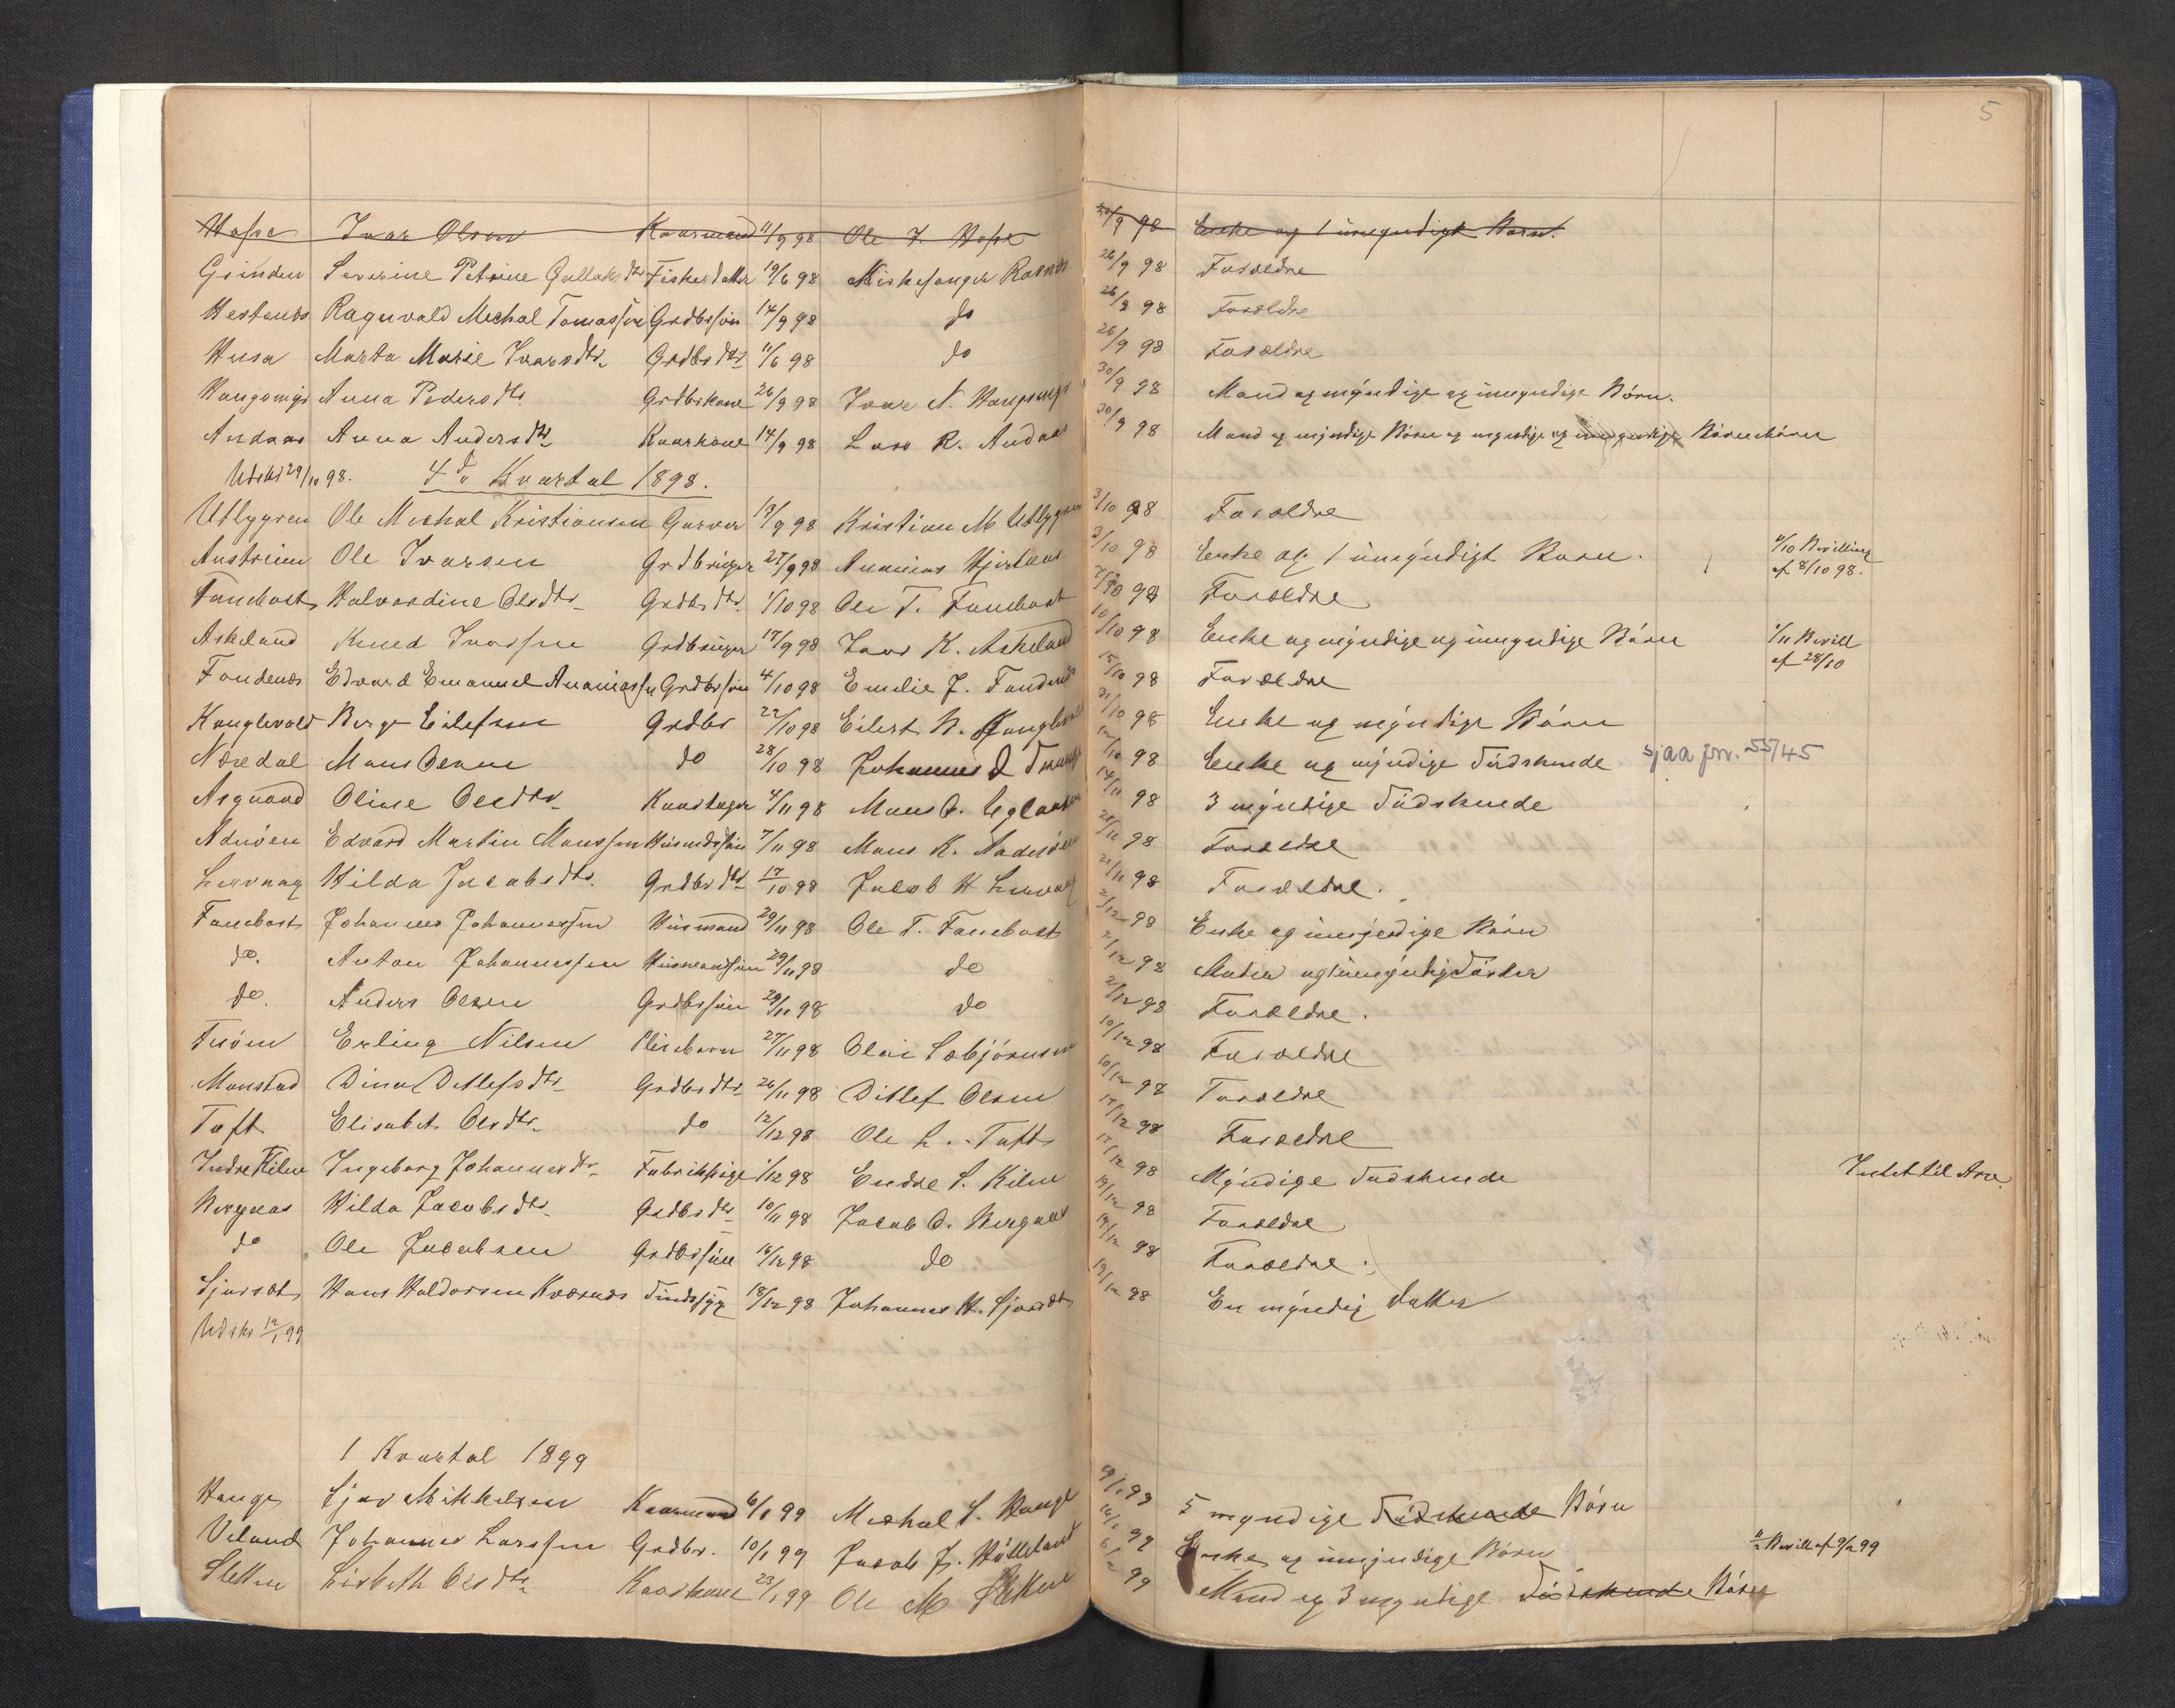 5
Hope Ivar Olsen Kaarmand 11/9 98 Ole J. Hope 20/9 98 Enke og 1 umyndigt Barn.
Grinden Severine Petrine Gullaksdtr Fiskerdatter 19/6 98 Kirkesanger Rosnes 26/9 98 Forældre
Hestnes Ragnvald Mechal Tomassøn Grdbrsøn 14/9 98 do 26/9 98 Forældre
Husa Marta Marie Ivarsdtr. Grdbrdtr 11/6 98 do 26/9 98 Forældre
Anna Pedersdtr. Grdbrkone 26/9 98 Ivar N. 30/9 98 Mand og myndige og umyndige Børn.
Andaas Anna Andersdtr Kaarkone 14/9 98 Lars R. Andaas 30/9 98 Mand og myndige Børn og myndige og umyndige Børnebørn
Udskr 29/10 98. 4de Kvartal 1898.
Utlygren Ole Mechal Kristiansen Garver 13/9 98 Kristian M Utlygren 3/10 98 Forældre
Austreim Ole Ivarsen Grdbruger 27/9 98 Ananias Hjertaas 3/10 98 Enke og 1 umyndigt Barn. 9/10 Bevilling
af 8/10 98.
Fanebost Halvardine Olsdtr Grdbrdtr. 1/10 98 Ole T. Fanebost 7/10 98 Forældre
Askeland Knud Ivarssen Grdbruger 17/9 98 Ivar K. Askeland 10/10 98 Enke og myndige og umyndige Børn 1/11 Bevill
af 28/10
Fondenes Edvard Emanuel Ananiassen Grdbrsøn 4/10 98 Emilie J. Fondenes 15/10 98 Forældre
Konglevold Berge Eilefsen Grdbr 22/10 98 Eilert B. Konglevold 31/10 98 Enke og myndige Børn
Nævdal Mons Olsen do 28/10 98 Johannes D 98 Enke og myndige Sødskende sjaa prv. 55/45
Asgaard Oline Olsdtr Kaartager 4/11 98 Mons O. 14/11 98 3 myndige Sødskende
Adnøen Edvard Martin Monssen Husmdssøn 7/11 98 Mons K. Aadnøen 21/11 98 Forældre
Lervaag Hilda Jacobsdtr. Grdbrdtr 17/10 98 Jacob H Lervaag 21/11 98 Forældre.
Fanebost Johannes Johannessen Husmand 29/11 98 Ole T. Fanebost 2/12 98 Enke og umyndige Børn
do. Anton Johannessen Husmandssøn 29/11 98 do 2/12 98 Moder og umyndig Søster
do. Anders Olsen Grdbrsøn 29/11 98 do 2/12 98 Forældre.
Erling Nilsen Pleiebarn 27/11 98 Olai 10/12 98 Forældre
Monstad Dina Ditlefsdtr Grdbrdtr 26/11 98 Ditlef Olsen 10/12 98 Forældre
Toft Elisabet Olsdtr do 12/12 98 Ole L. Toft 17/12 98 Forældre
Indre Kilen Ingeborg Johannesdtr Fabrikpige 1/12 98 Endre S. Kilen 17/12 98 Myndige Sødskende Intet til Arv.
Bergaas Hilda Jacobsdtr Grdbrdtr 10/11 98 Jacob O. Bergaas 19/12 98 Forældre
do Ole Jacobsen Grdbrsøn 16/12 98 do 19/12 98 Forældre.
Sjurset Hans Haldorsen Kværnes Sindssyg 18/12 98 Johannes H. Sjurset 19/12 98 En myndig Datter
Udskr 12/1 99
1 Kvartal 1899
Hauge Sjur Mikkelsen Kaarmand 6/1 99 Mechal S. Hauge 9/1 99 5 myndige Sødskende Børn
Veland Johannes Larssen Grdbr. 10/1 99 Jacob J. 16/1 99 Enke og umyndige Børn Bevill af 9/2 99
Sletten Lisbeth Olsdtr Kaarkone 23/1 99 Ole M Sletten 6/2 99 Mand og 3 myndige Sødskende Børn